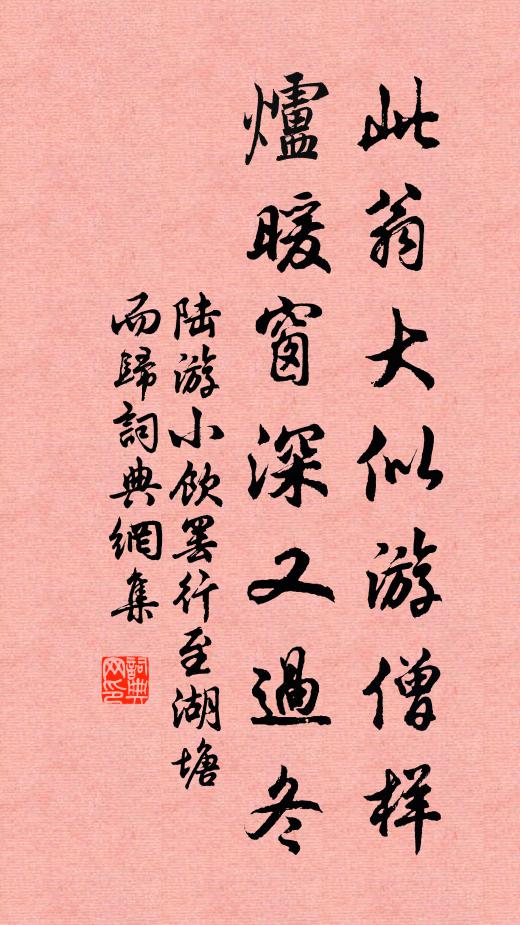 此翁大似游僧样
爐暖窗深又過冬
陆游小飲罢行至湖塘
而歸詞典網集
詞典网印